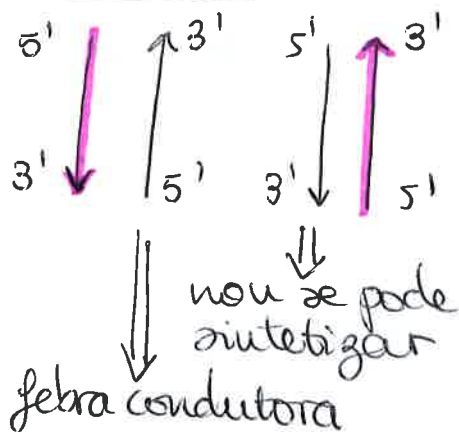 5' 3' 5' 3'
3' 5' 3' 5'
non se pode
sintetizar
febra condutora